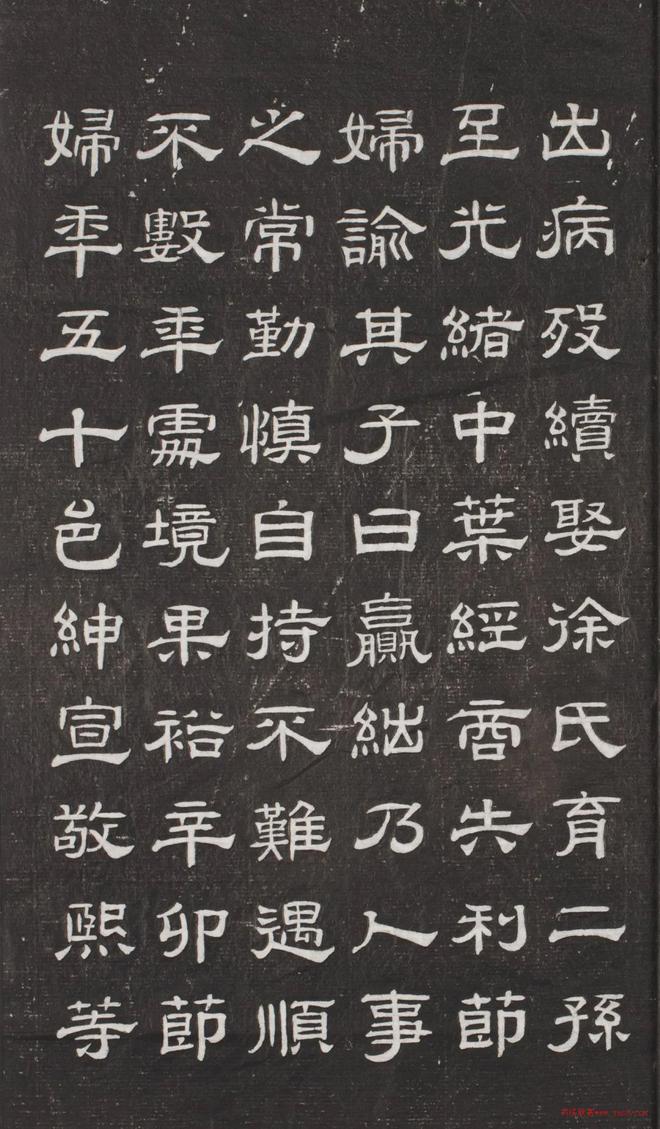 出病歿續娶徐氏育二孫
至光緒中葉經商失利節
婦諭其子曰贏絀乃人事
之常勤慎自持不難遇順
不數年處境果裕辛卯節
婦年五十邑紳宣敬熙等